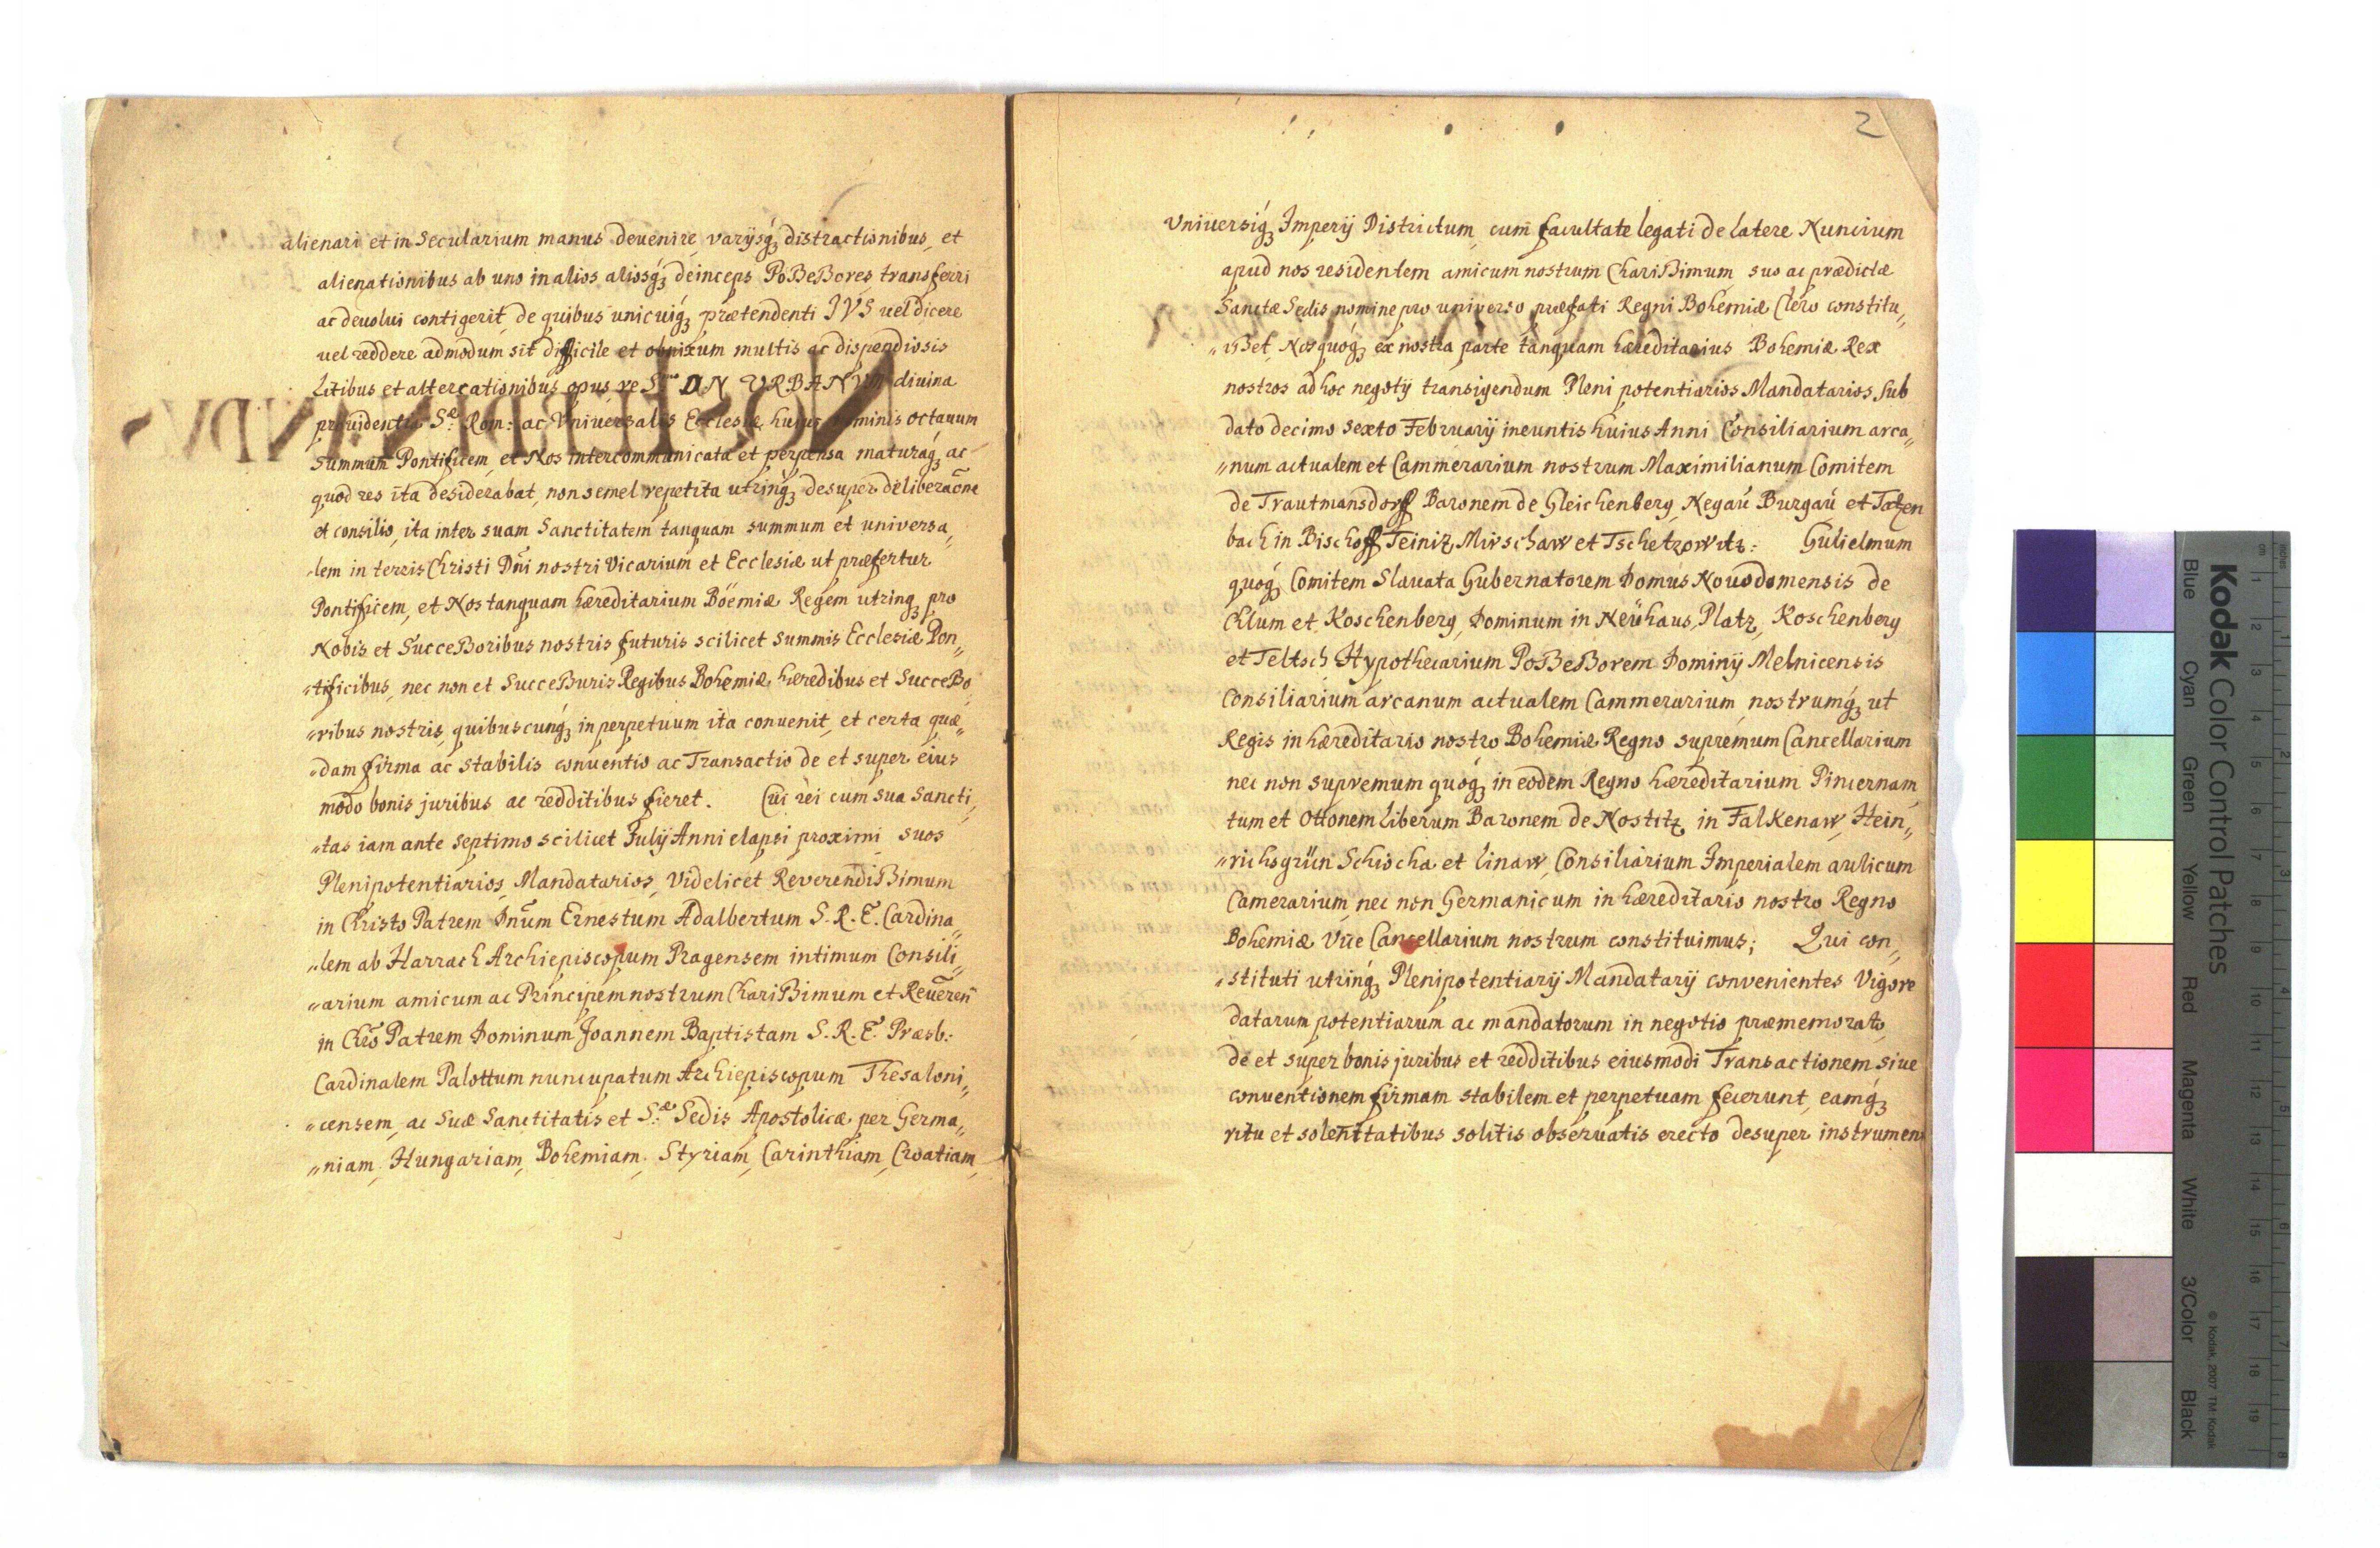 alienari et in Secularium manus devenire varijsq; distractionibus, et
alienationibus ab uno in alios, aliosq; deinceps Possessores transferri
ac devolui contigerit, de quibus unicuiq; prætendenti IVS vel dicere
vel reddere admodum sit difficile et obnixum multis ac dispendiosis
Litibus et altercationibus opus, ve S.mum DN VRBANVM divina
providentia S.æ Rom: ac Vniversalis Ecclesiæ huius nominis octauum
Summum Pontificem, et Nos intercommunicata et perpensa maturaq; ac
quod res ita desiderabat, non semel repetita utrinq; desuper deliberacne
et consilio, ita inter suam Sanctitatem tanquam summum et universa„
„lem in terris Christi Dni nostri Vicarium et Ecclesiæ ut præfertur
Pontificem, et Nos tanquam hæreditarium Böemiæ Regem utrinq; pro
Nobis et Successoribus nostris futuris scilicet summis Ecclesiæ Pon„
„tificibus, nec non et Successuris Regibus Bohemiæ hæredibus et Successo„
„ribus nostris, quibuscunq; in perpetuum ita convenit, et certa quæ„
„dam firma ac stabilis conventio ac Transactio de et super eius
modo bonis juribus ac redditibus fieret. Cui rei cum sua Sancti„
„tas iam ante septimo scilicet Julij Anni elapsi proximi suos
Plenipotentiarios Mandatarios, Videlicet Reverendissimum
in Christo Patrem Dnum Ernestum Adalbertum S. R. E. Cardina„
„lem ab Harrach Archiepiscopum Pragensem intimum Consili„
„arium amicum ac Principem nostrum Charissimum et Reveren
in Chro Patrem Dominum Joannem Baptistam S. R. E. Præsb:
Cardinalem Palottum nuncupatum Archiepiscopum Thesaloni„
„censem, ac Suæ Sanctitatis et S.æ Sedis Apostolicæ per Germa„
„niam, Hungariam, Bohemiam, Styriam, Carinthiam, Croatiam,
2
Vniversiq; Imperij Districtum, cum facultate legati de latere Nuncium
apud nos residentem amicum nostrum Charissimum suo ac prædictæ
Sanctæ Sedis nomine pro universo præfati Regni Bohemiæ Clero constitu„
„isset, Nos quoq; ex nostra parte tanquam hæreditarius Bohemiæ Rex
nostros ad hoc negotij transigendum Pleni potentiarios Mandatarios, sub
dato decimo sexto February ineuntis huius Anni Consiliarium arca„
„num actualem et Cammerarium nostrum Maximilianum Comitem
de Trautmansdorff Baronem de Gleichenberg, Negaú Burgaú et Tatzen
bach in Bischoff Teiniz, Mirschaw et Tschetzowitz: Gúlielmum
quoq; Comitem Slavata Gubernatorem Domus Novodomensis de
Chlum et Koschenberg, Dominum in Neühaus, Platz, Koschenberg
et Teltsch Hypothecarium Possessorem Dominij Melnicensis
Consiliarium arcanum actualem Cammerarium, nostrumq; ut
Regis in hæreditario nostro Bohemiæ Regno supremum Cancellarium
nec non supremum quoq; in eodem Regno hæreditarium Pincernam,
tum et Ottonem Liberum Baronem de Nostitz, in Falkenaw, Hein„
„richsgrün Schocha et Linaw, Consiliarium Imperialem aulicum
Camerarium, nec non Germanicum in hæreditario nostro Regno
Bohemiæ Vice Cancellarium nostrum constituimus; Qui con„
„stituti utrinq; Plenipotentiarij Mandatarij convenientes Vigore
datarum potentiarum ac mandatorum in negotio præmemorato,
de et super bonis juribus et redditibus eiusmodi Transactionem sive
conventionem firmam stabilem et perpetuam fecerunt, eamq;
ritu et solenitatibus solitis observatis erecto desuper instrumen
Kodak Color Control Patches
Blue Cyan Green Yellow Red Magenta White 3/Color Black
© Kodak, 2007 TM: Kodak